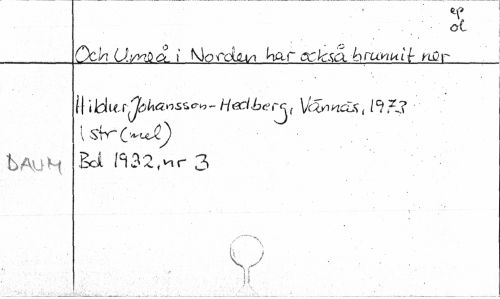 ep
ol
Och Umeå i Norden har också brunnit ner
Hildur Johansson-Hedberg, Vännäs, 1973
1 str (mel)
DAUM Bd 1932, nr 3